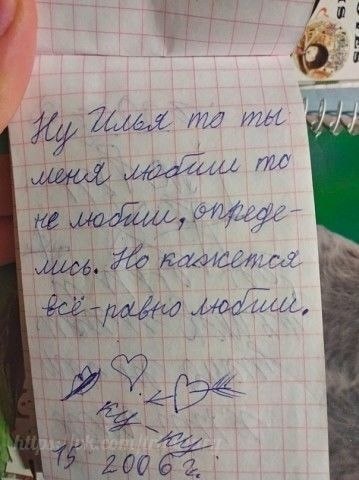 Ну Илья то ты
меня любиш то
не любиш, опреде-
лись. Но кажется
всё-равно любиш.
ку-ку
15 2006 г.